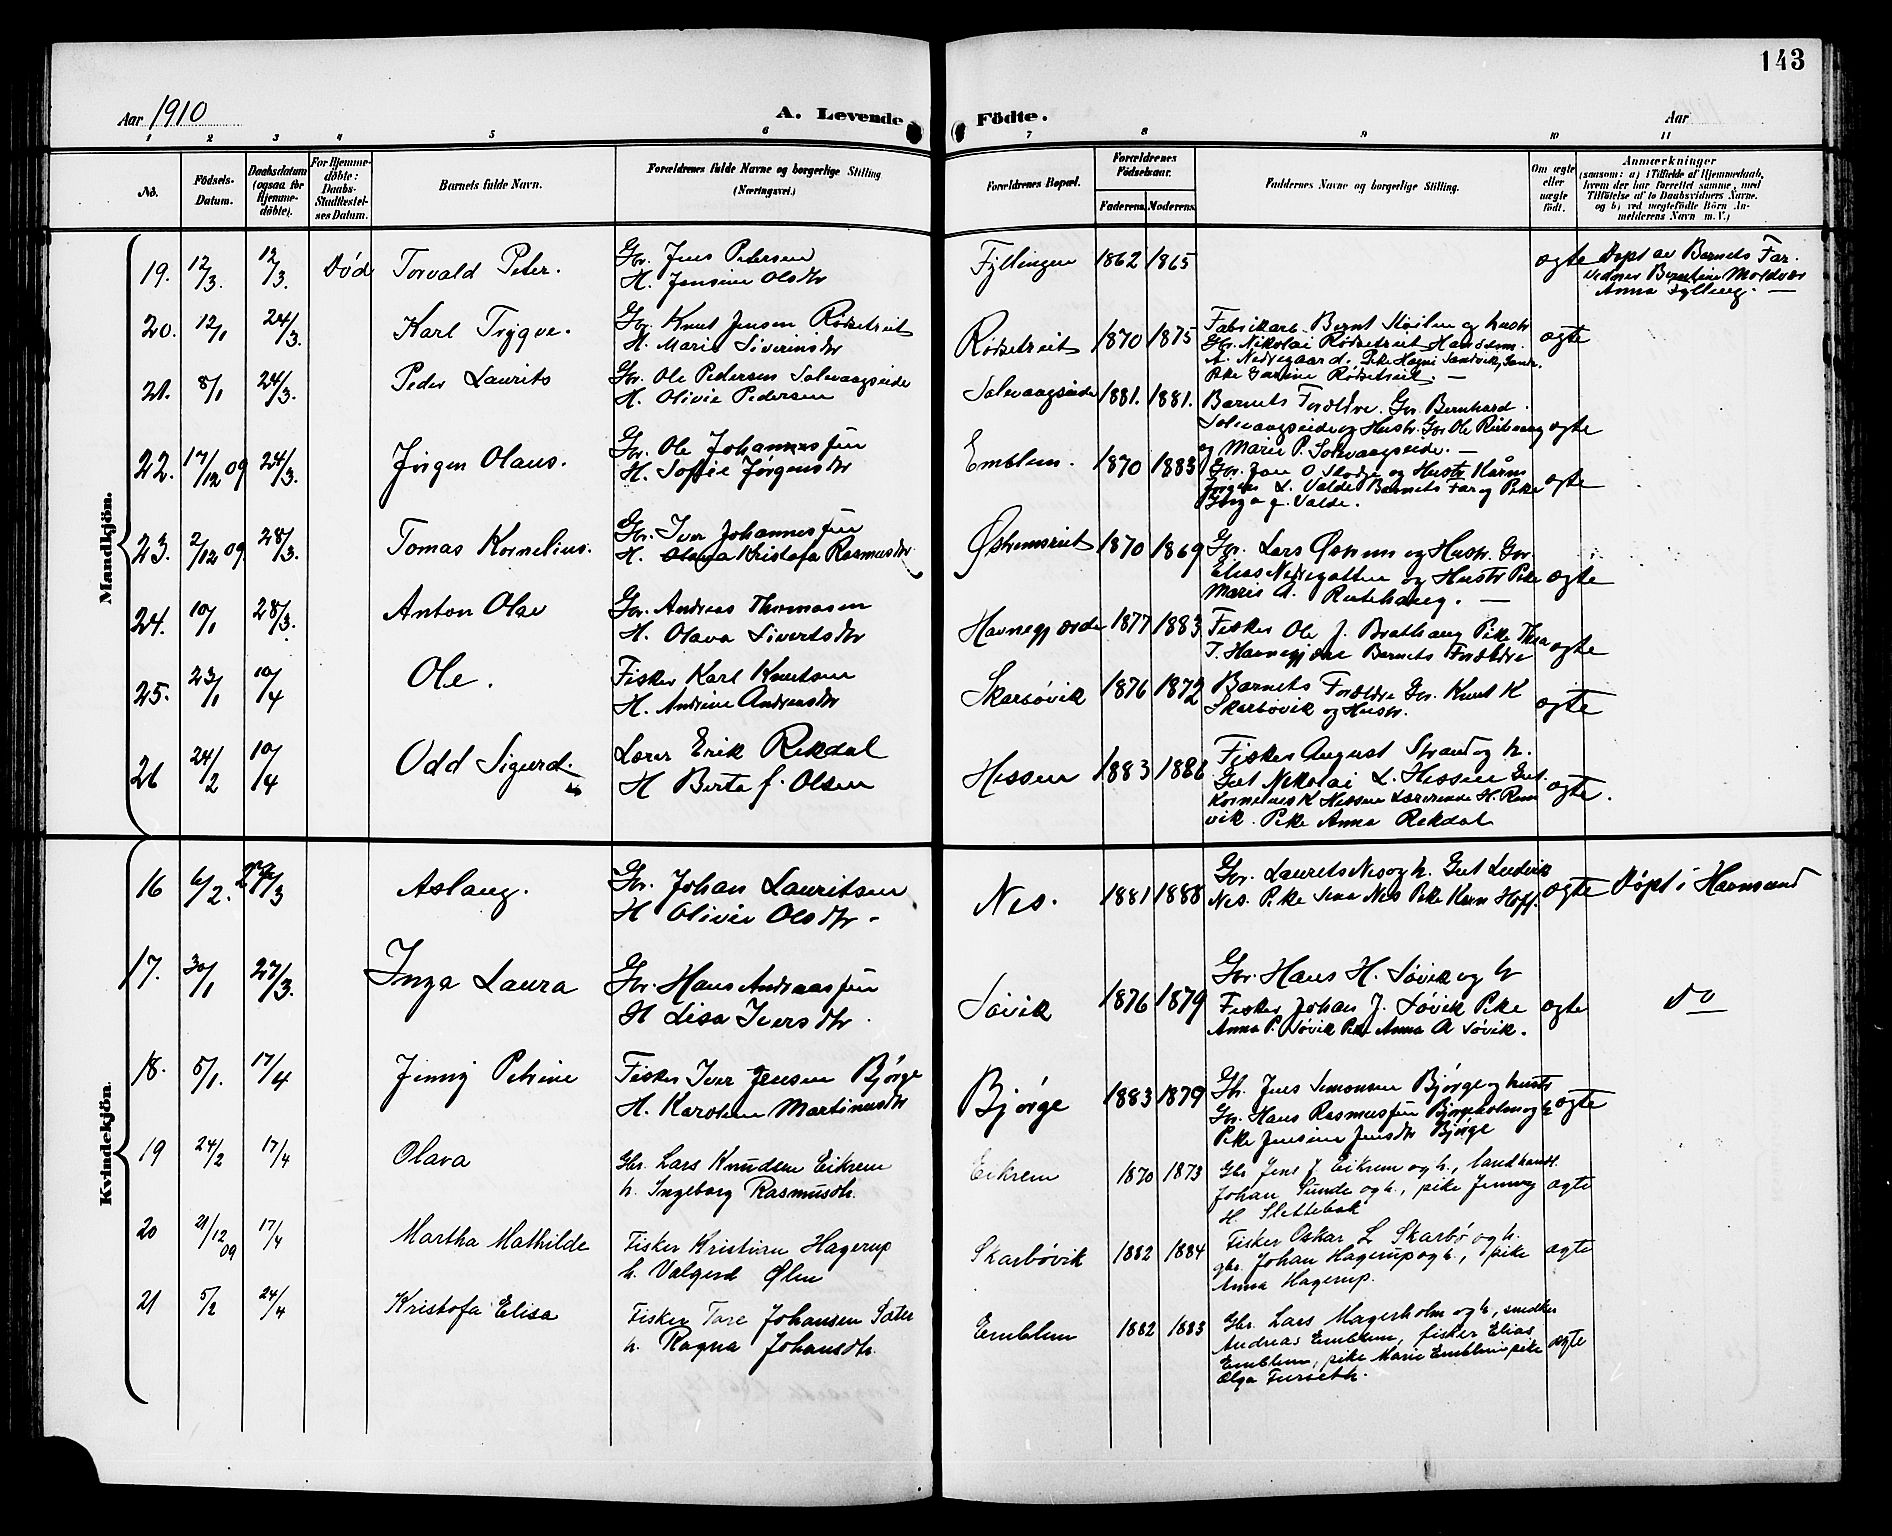 143
Aar 1910
A. Levende
Födte.
Aar
1 2 3 4 5 6 7 8 9 10 11
No.
Födsels-
Datum.
Daabsdatum
(ogsaa for
Hjemme-
döbte).
For Hjemme-
döbte:
Daabs-
Stadfæstel-
ses Datum.
Barnets fulde Navn.
Forældrenes fulde Navne og borgerlige Stilling
(Næringsvei.)
Forældrenes Bopæl.
Forældrenes
Födselsaar.
Faderens.
Moderens.
Faddernes Navne og borgerlige Stilling.
Om ægte
eller
uægte
födt.
Anmærkninger
(saasom: a) i Tilfælde af Hjemmedaab,
hvem der har forrettet samme, med
Tilföielse af to Daabsvidners Navne.
og b) ved uægtefödte Börn An-
melderens Navn m. V.)
Mandkjön.
19. 12/3. 12/3. Død Torvald Peter.
Gbr. Jens Petersen
H. Jensine Olsdtr
Fyllingen 1862 1865
ægte
Døpt av Barnets Far.
vidner Berntine Moldvær
Anna Fylling. —
20. 12/1 24/3. Karl Trygve.
Gbr. Knut Jensen Rödsetreit
H. Marie Siverinsdtr
Rödsetreit 1870 1875
Fabrikarb. Bernt Støilen og hustr
Gbr. Nikolai Rödsetreit Handelsm.
A. Nedregaard. Pike Hagni Sandvik,
Pike Rödsetreit. —
ægte
21. 8/1 24/3. Peder Laurits
Gbr. Ole Pedersen Solevaagseide
H. Olivie Pedersen
Solevaagseide 1881. 1881.
Barnets Forældre. Gbr. Bernhard
Solevaagseide og Hustr. Gbr Ole Rutehaug
og Marie P. Solevaagseide. —
ægte
22. 17/12 09 24/3. Jörgen Olaus.
Gbr. Ole Johannessen
H. Sofie Jørgensdtr
Emblem. 1870 1883
Gbr. Jon O Flodje og Hustr. Kårm
Jörgen L. Valde Barnets Far og Pike
Inga J. Valde.
ægte
23. 2/12 09 28/3. Tomas Kornelius.
Gbr. Iver Johannessen
H. Kristofa Rasmusdtr
Østremsreit 1870 1869
Gbr. Lars Østrem og Hustr. Gbr.
Elias Nedregotten og Hustr Pike
Marie A. Rutehaug. —
ægte
24. 10/1 28/3. Anton Olav
Gbr. Andreas Thomasen
H. Olava Sivertsdtr
Havnegjærde 1877 1883
Fisker Ole J. Brathaug Pike Thea
T. Havnegjære Barnets Forældre
ægte
25. 23/1 10/4 Ole.
Fisker Karl Knutsen
H. Andrine Andreasdtr
Skarbövik 1876 1872
Barnets Forældre Gbr. Knut K
Skarbövik og Hustr.
ægte
26 24/2 10/4 Odd Sigurd.
Lærer Erik Rekdal
H Berta f. Olsen
Hessen 1883 1886
Fisker August Strand og h.
Gut Nikolai L. Hessen Gut
Kornelius K Hessen Lærerinde H. Rem
vik. Pike Anna Rekdal
ægte.
Kvindekjön.
16 6/2. 27/3 Aslaug.
Gbr. Johan Lauritsen
H Olivie Olsdtr -
Nes. 1881 1888
Gbr. Laurits Nes og h. Gut Ludvik
Nes. Pike Sina Nes Pike Karn Hoff.
ægte
Døpt i Hamsund
17. 30/1 27/3. Inga Laura
Gbr. Hans Andreassen
H Lisa Iversdtr.
Søvik 1876 1879
Gbr. Hans H. Søvik og h
Fisker Johan J. Søvik Pike
Anna P. Søvik Pike Anna A Søvik.
ægte
Do
18. 5/1. 17/4 Jenny Petrine
Fisker Iver Jensen Bjørge
H. Karoline Martinusdtr
Bjørge 1883 1879
Gbr. Jens Simonsen Bjørge og hustr
Gbr. Hans Rasmussen Bjørgeholm og h
Pike Jensine Jensdtr Bjørge
ægte
19 24/2 17/4 Olava
Gbr. Lars Knudsen Eikrem
h. Ingeborg Rasmusdtr.
Eikrem 1870 1873
Gbr Jens J Eikrem og h., landhandl.
Johan Sunde og h., pike Jenny
H. Slettebak
ægte
20 21/12 09 17/4 Martha Mathilde
Fisker Kristian Hagerup
h. Valgerd Ølen
Skarbövik 1882 1884
Fisker Oskar L Skarbø og h.
gbr. Johan Hagerup og h., pike
Anna Hagerup.
ægte
21 5/2 24/4 Kristofa Elisa
Fisker Tore Johansen Sæter
h. Ragna Johansdtr.
Emblem 1882 1883
Gbr. Lars Magerholm og h, snedker
Andreas Emblem, fisker Elias
Emblem, pike Marie Emblem pike
Olga Furseth.
ægte